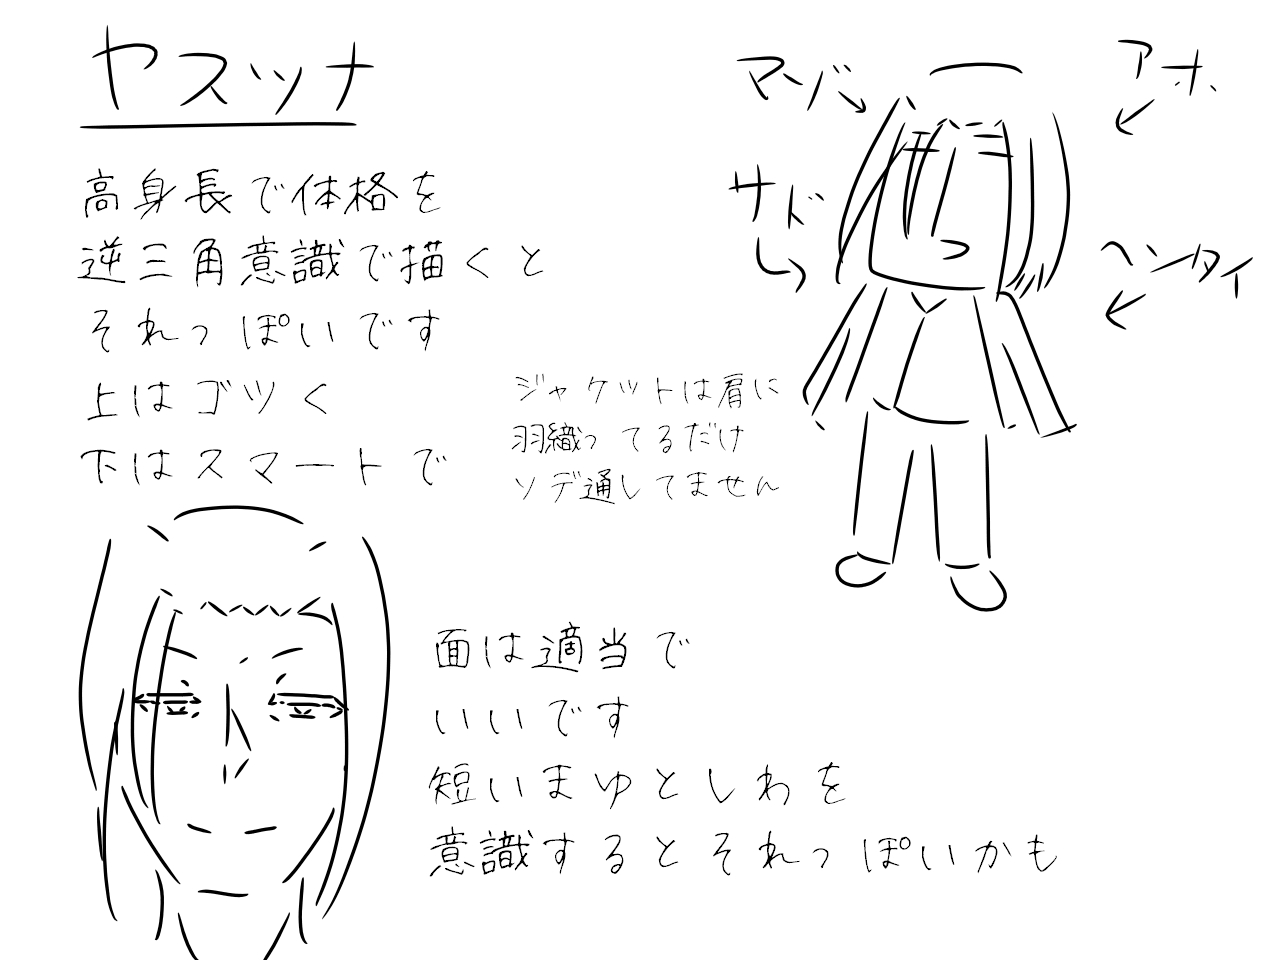 ヤスツナ
高身長で体格を
逆三角意識で描くと
それっぽいです
上はゴツく
下はスマートで
マゾ
アホ
サド
ヘンタイ
ジャケットは肩に
羽織ってるだけ
ソデ通してません
面は適当で
いいです
短いまゆとしわを
意識するとそれっぽいかも